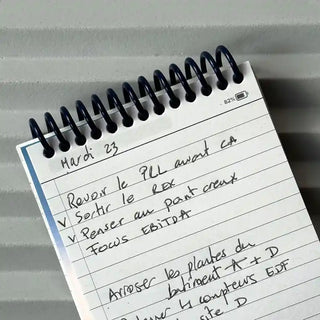 82%
Mardi 23
Revoir le PRL avant CA
v Sortir le REX
v Penser au point creux
Focus EBITDA
Arroser les plantes du
bâtiment A + D
4 compteurs EDF
site D